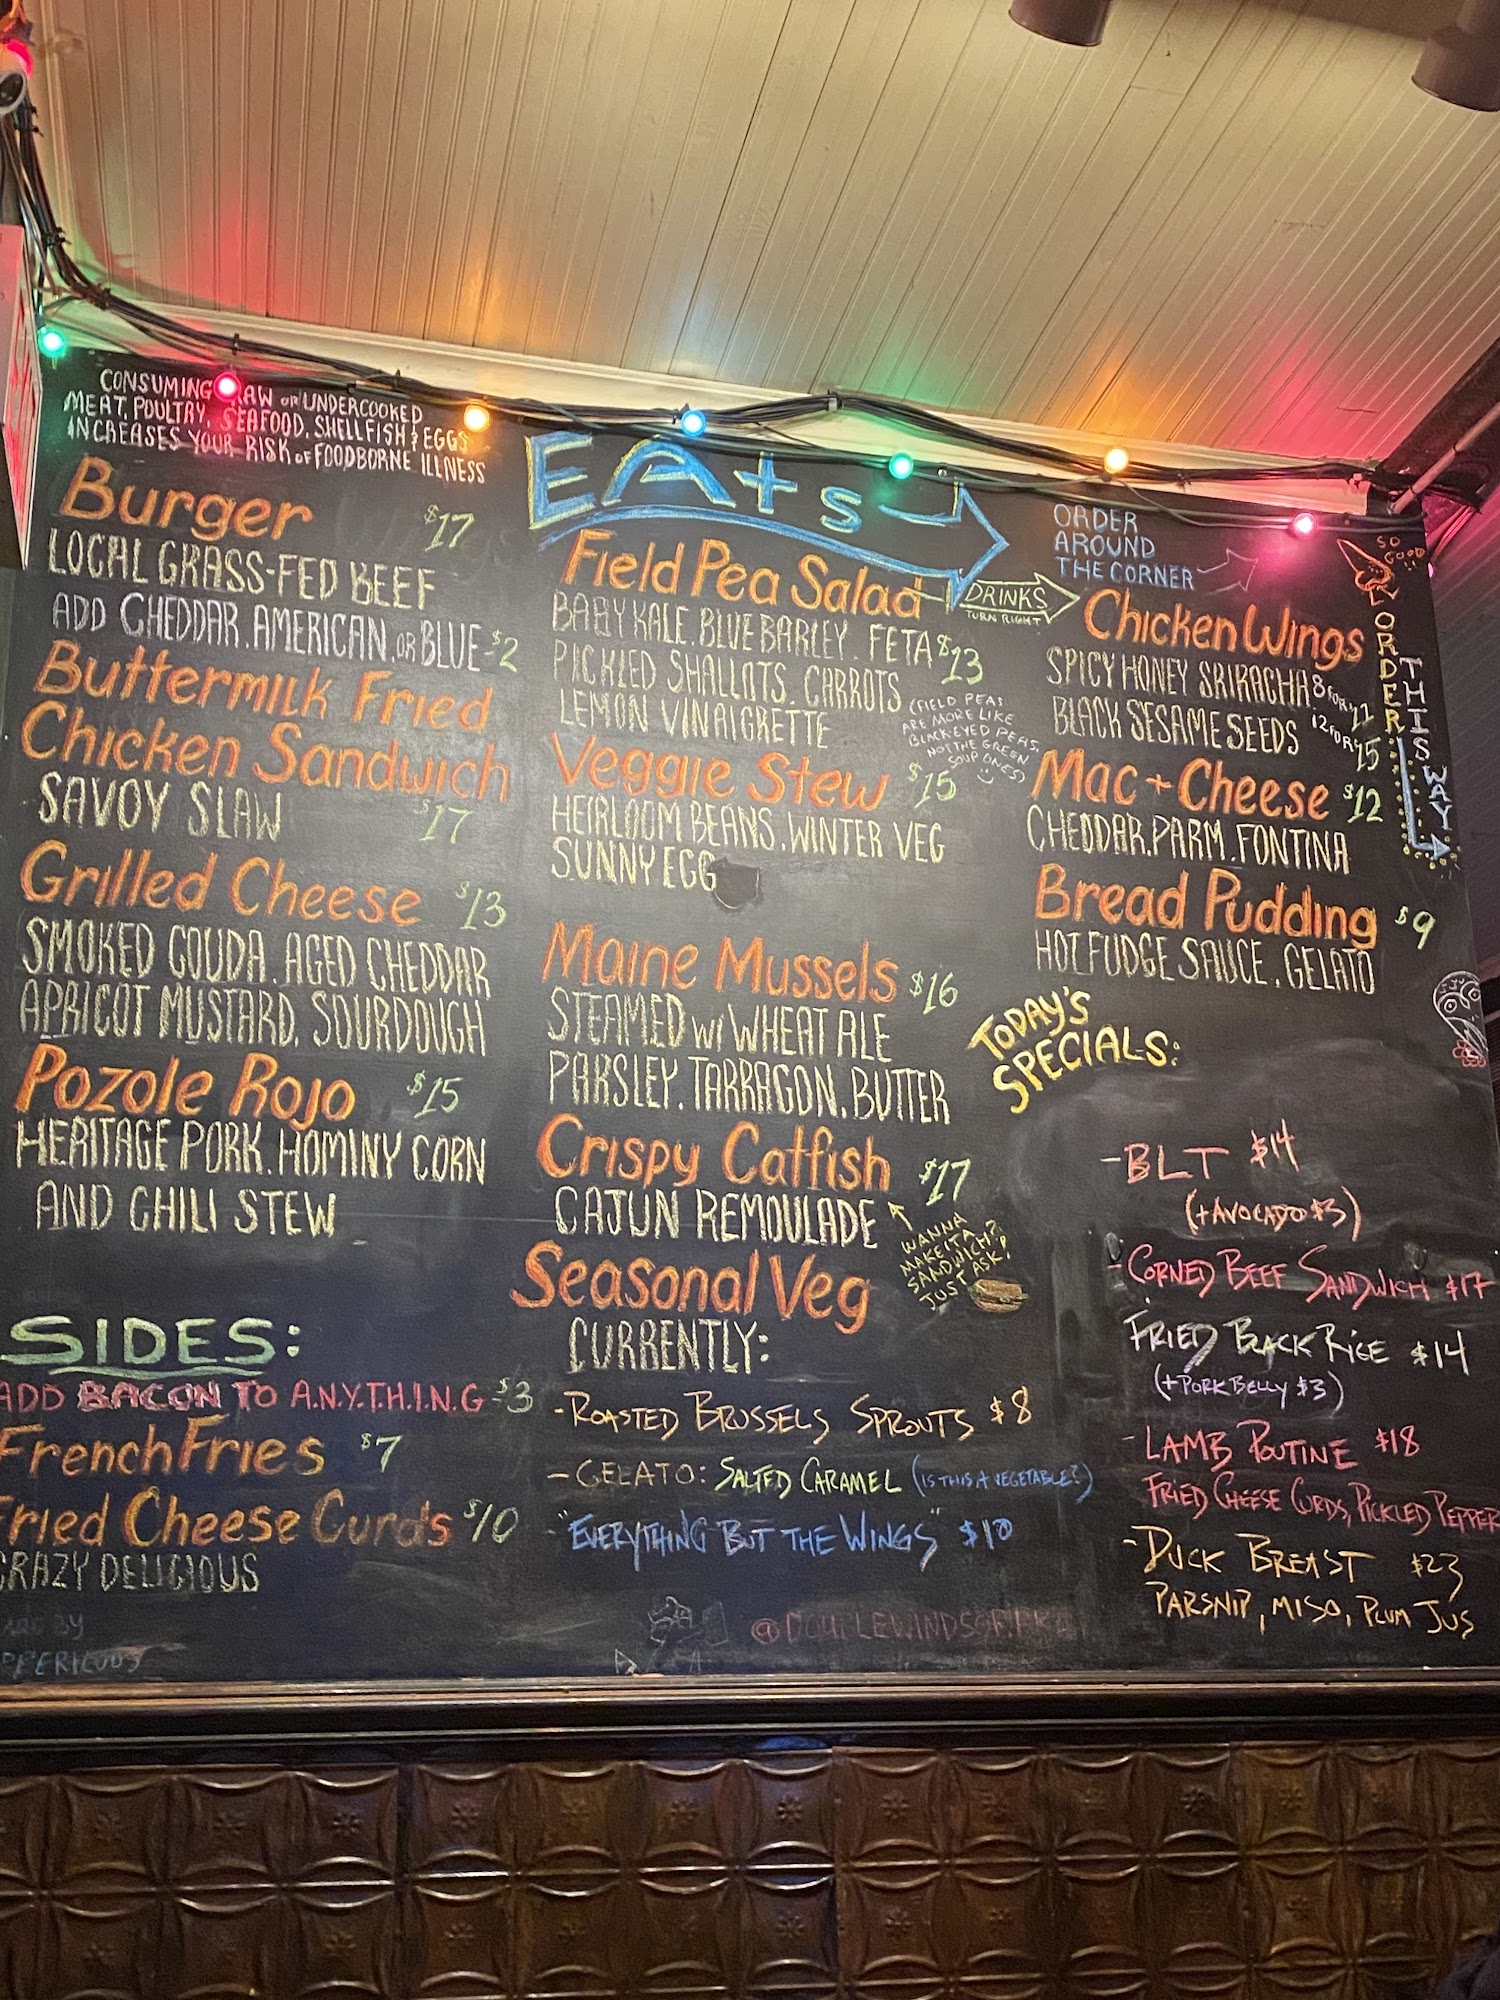 CONSUMING RAW OR UNDERCOOKED
MEAT, POULTRY, SEAFOOD, SHELLFISH & EGGS
INCREASES YOUR RISK OF FOODBORNE ILLNESS
Burger $17
LOCAL GRASS-FED BEEF
ADD CHEDDAR, AMERICAN, OR BLUE -$2
Buttermilk Fried
Chicken Sandwich
SAVOY SLAW $17
Grilled Cheese $13
SMOKED GOUDA, AGED CHEDDAR
APRICOT MUSTARD, SOURDOUGH
Pozole Rojo $15
HERITAGE PORK, HOMINY CORN
AND CHILI STEW
SIDES:
ADD BACON TO A.N.Y.T.H.I.N.G -$3
French Fries $7
Fried Cheese Curds $10
CRAZY DELICIOUS
BY
EATS
Field Pea Salad
BABY KALE, BLUE BARLEY, FETA $13
PICKLED SHALLOTS, CARROTS
LEMON VINAIGRETTE
(FIELD PEAS
ARE MORE LIKE
BLACK EYED PEAS,
NOT THE GREEN
SOUP ONES)
Veggie Stew $15
HEIRLOOM BEANS, WINTER VEG
SUNNY EGG
Maine Mussels $16
STEAMED W/ WHEAT ALE
PARSLEY, TARRAGON, BUTTER
Crispy Catfish $17
CAJUN REMOULADE
WANNA
MAKE IT A
SANDWICH?
JUST ASK!
Seasonal Veg
CURRENTLY:
- ROASTED BRUSSELS SPROUTS $8
- GELATO: SALTED CARAMEL (IS THIS A VEGETABLE?)
- "EVERYTHING BUT THE WINGS" $10
ORDER
AROUND
THE CORNER
DRINKS
TURN RIGHT
Chicken Wings
SPICY HONEY SRIRACHA 8 FOR $11
BLACK SESAME SEEDS 12 FOR $15
Mac + Cheese $12
CHEDDAR, PARM, FONTINA
Bread Pudding $9
HOT FUDGE SAUCE, GELATO
SO
GOOD
ORDER
THIS WAY
TODAY'S
SPECIALS:
- BLT $14
(+ AVOCADO $3)
- CORNED BEEF SANDWICH $17
FRIED BLACK RICE $14
(+ PORK BELLY $3)
- LAMB POUTINE $18
FRIED CHEESE CURDS, PICKLED PEPPER
- DUCK BREAST $23
PARSNIP, MISO, PLUM JUS